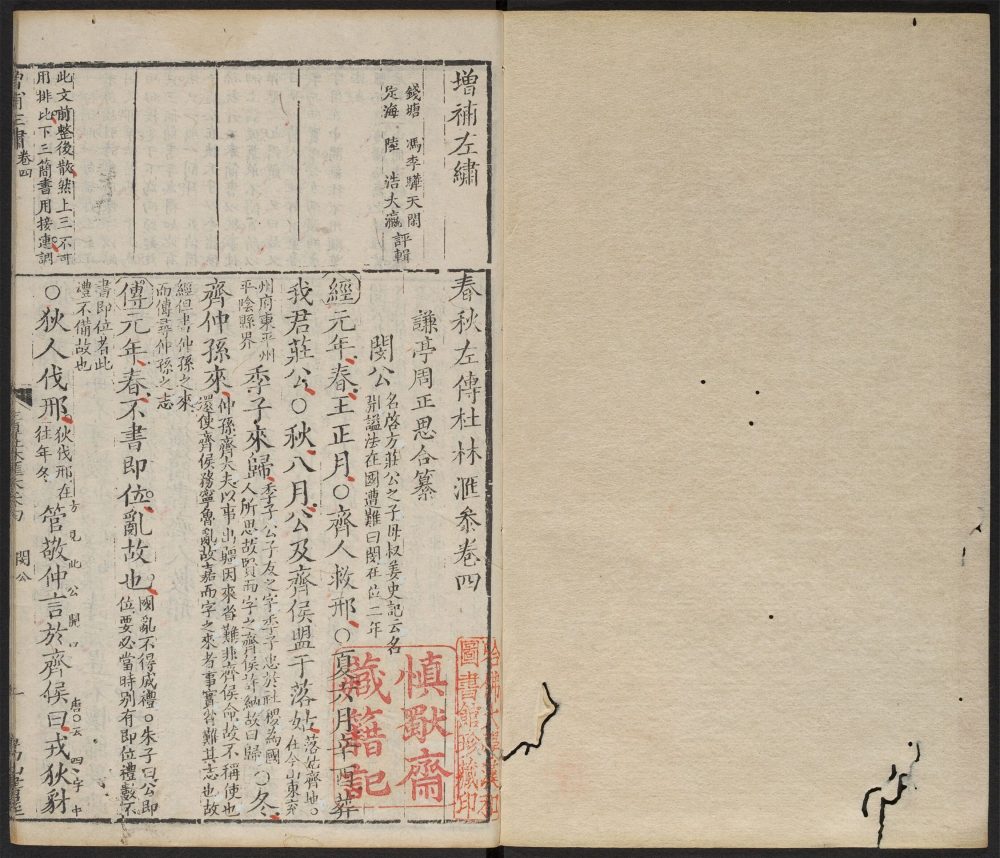 增補左繡
錢塘 馮李驊天閑
定海 陸 浩大瀛 評輯
此文前整後散然上三不可
用排比下三簡書用接連調
增補左繡 卷四
春秋左傳杜林滙叅卷四
謙亭周正思合纂
閔公 名啓方莊公之子母叔姜史記云名
引諡法在國遭難曰閔在位二年
經元年春王正月○齊人救邢○夏六月辛酉葬
我君莊公○秋八月公及齊侯盟于落姑 落姑齊地○
在今山東兗
州府東平州
平陰縣界 季子來歸 季子公子友之字季子忠於社稷為國
人所思故賢而字之齊侯許納故曰歸 ○冬
齊仲孫來 仲孫齊大夫以事出疆因來省難非齊侯命故不稱使也
還使齊侯務寧魯亂故嘉而字之來者事實省難其志也故
經但書仲孫之來
而傳尋仲孫之志
傳元年春不書即位亂故也 國亂不得成禮○朱子曰公即
位要必當時別有即位禮數不
書即位者此
禮不備故也
○狄人伐邢 狄伐邢在
往年冬 管敬仲言於齊侯曰戎狄豺
方見此公開口
唐○云四字中
閔公
慎獸齋
藏籍記
哈佛大學漢和
圖書館珍藏印